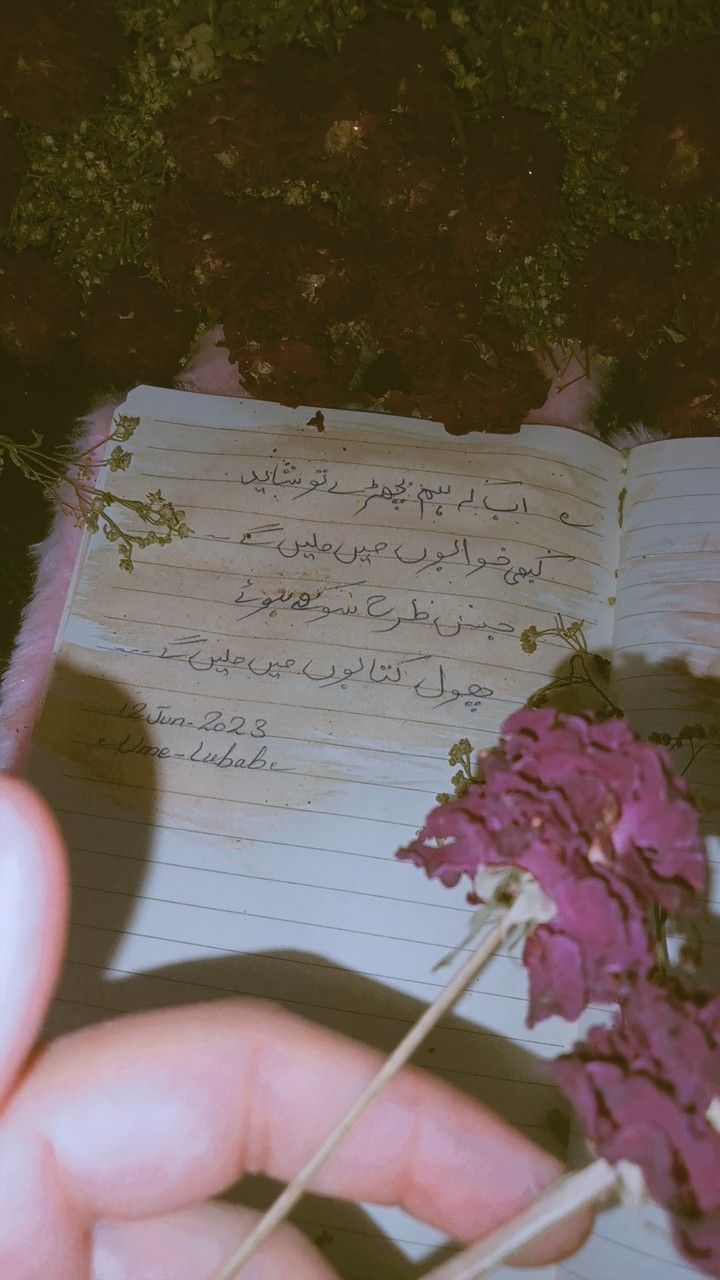 اب کے ہم بچھڑے تو شاید
کبھی خوابوں میں ملیں گے
جس طرح سوکھے ہوئے
پھول کتابوں میں ملیں گے
12-Jun-2023
Ume-Lubaba